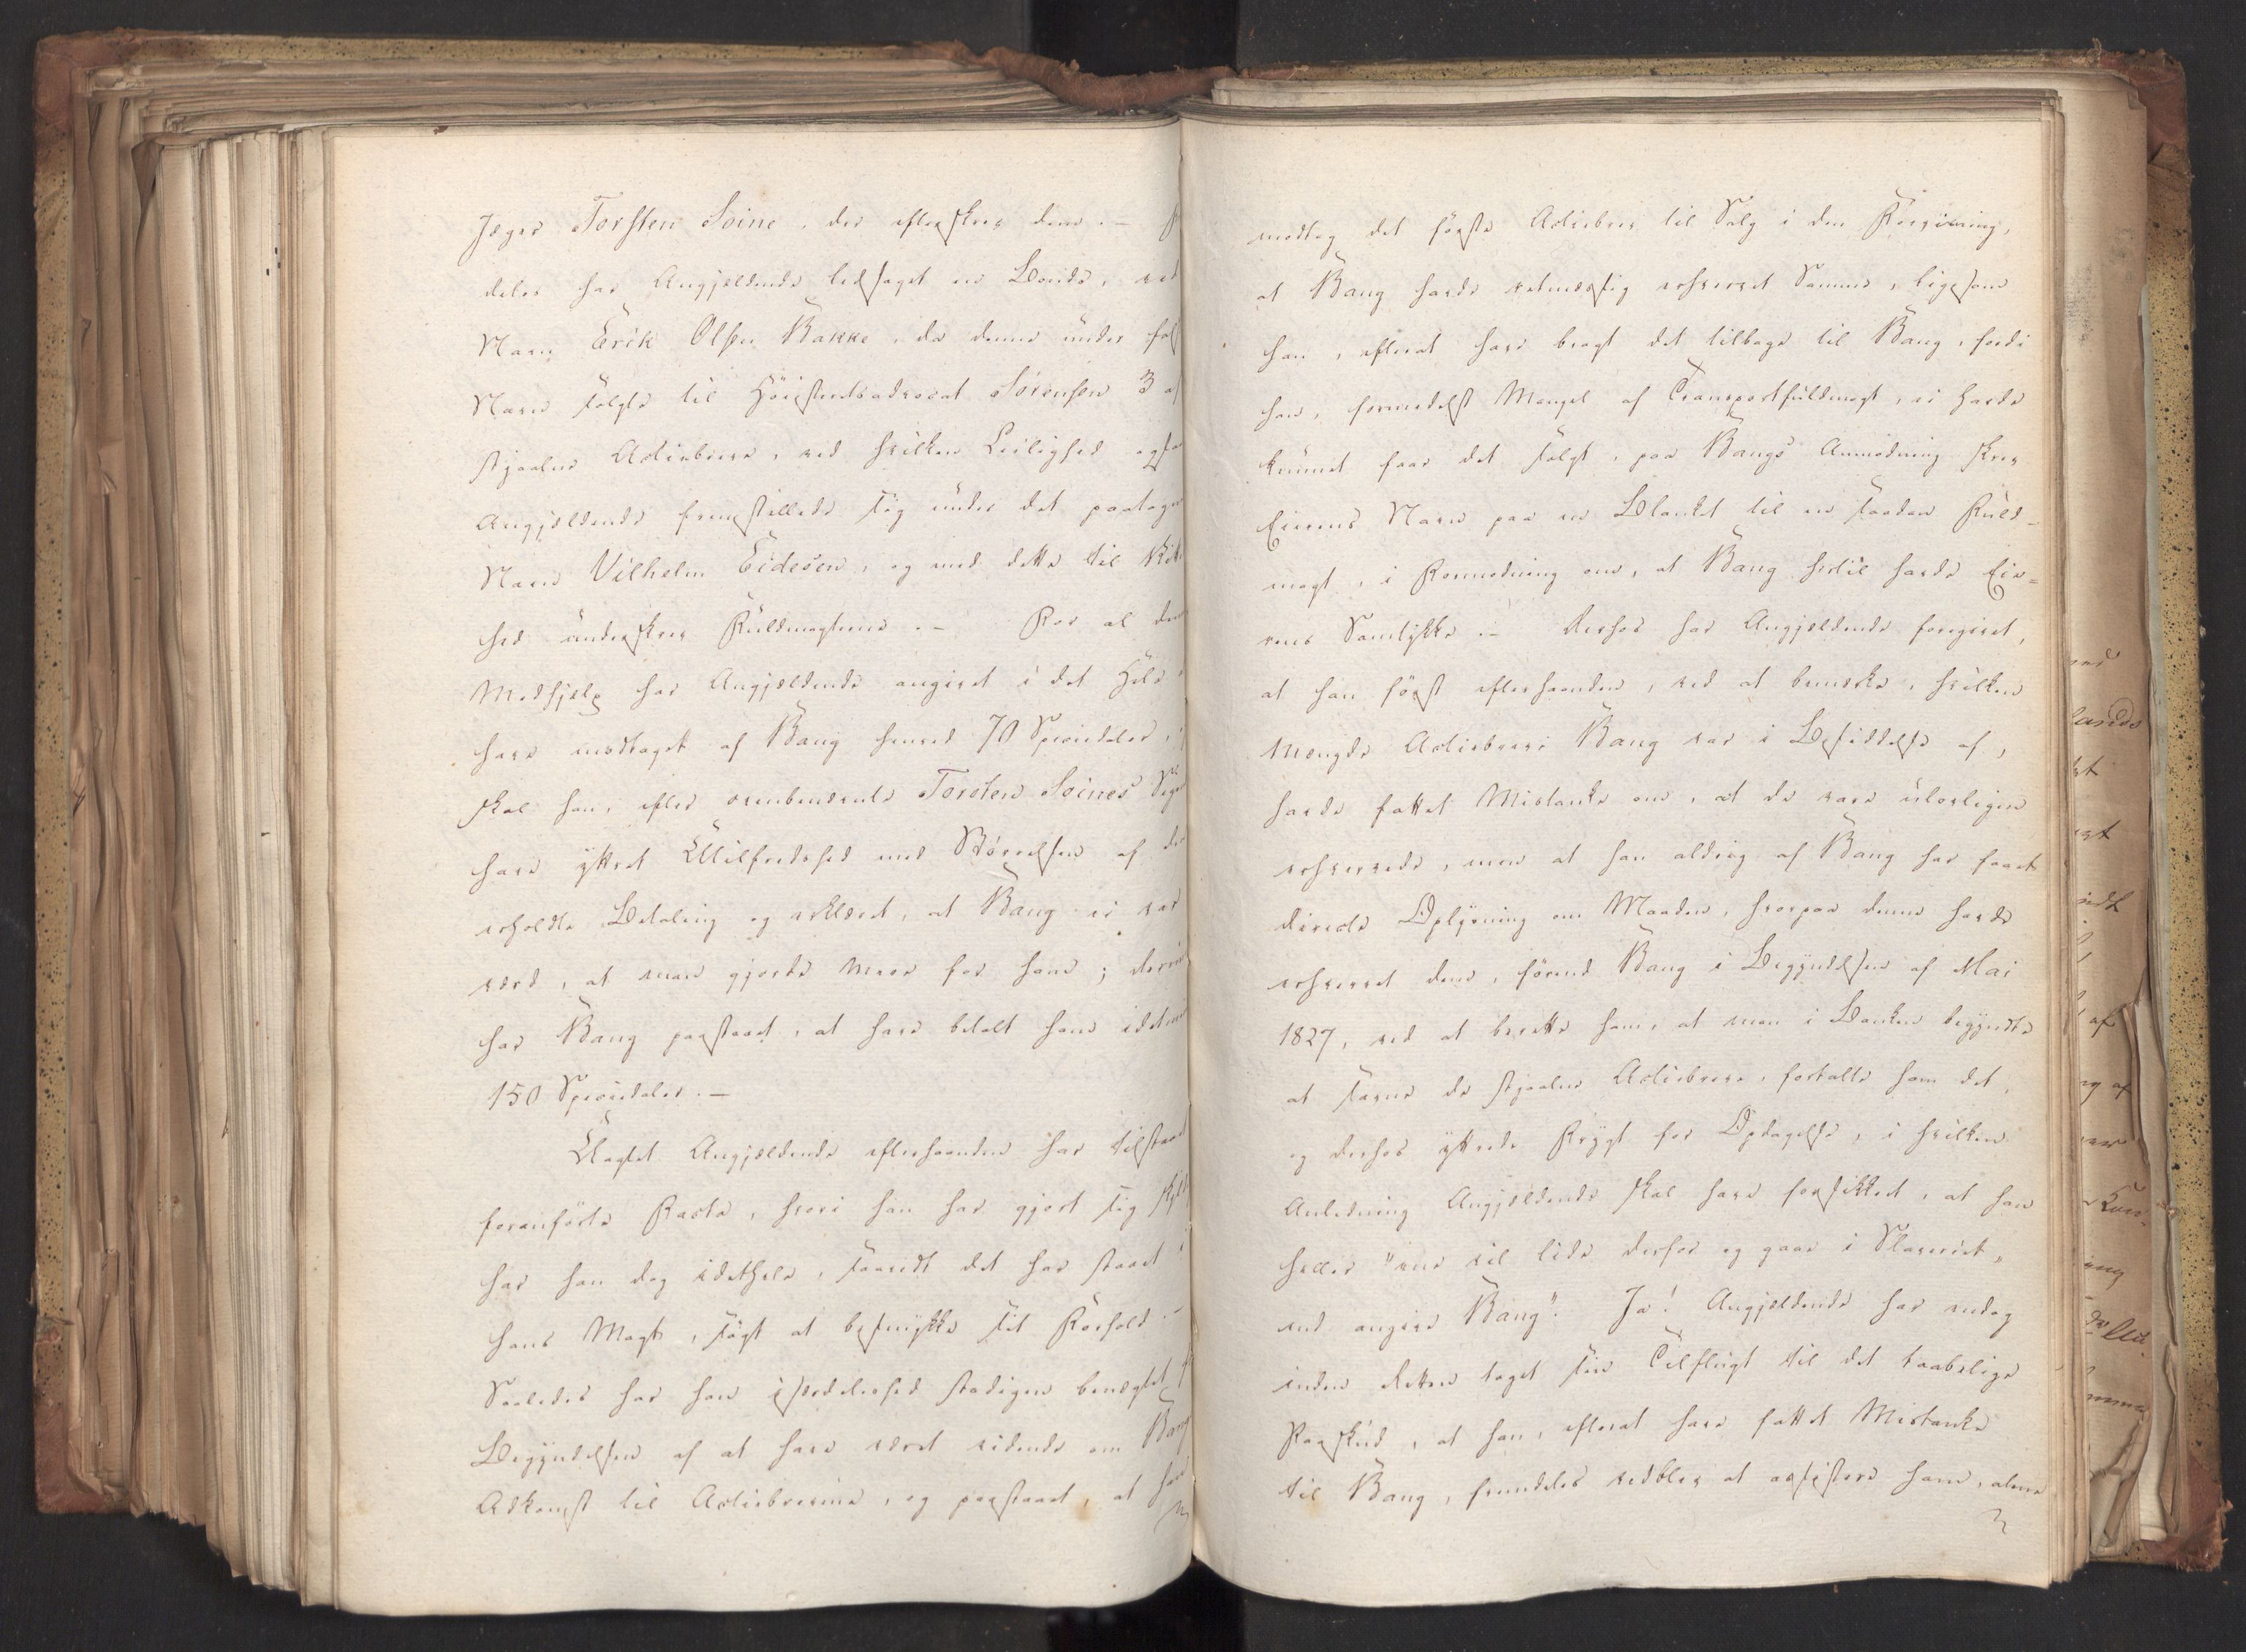 Jæger Torsten Soine, der efterskrev dem. –
deles har Angjeldende ledsaget en Bonde, ved
Navn Erik Olsen Bakke, da denne under falsk
Navn solgte til Höiesteretsadvocat Sörensen 3 af
stjaalne Actiebreve, ved hvilken Leilighed ogsaa
Angjeldende fremstillede sig under det paatagne
Navn Vilhelm Eidesen, og med dette til
hed underskrev Fuldmagterne. – For al denne
Medhjelp har Angjeldende angivet i det Hele
have modtaget af Bang henved 70 Speciedaler,
skal han, efter ovenbenævnte Torsten Soines Sigende
have yttret Utilfredshed med Störrelsen af den
erholdte Betaling og erklæret, at Bang ei var
værd, at man gjorde Mere for ham;
har Bang paastaaet, at have betalt ham idetmindste
150 Speciedaler. –
Uagtet Angjeldende efterhaanden har tilstaaet
foranförte Facta, hvori han har gjort sig skyldig
har han dog idethele, saavidt det har staaet i
hans Magt, sögt at besmykke sit Forhold. –
Saaledes har han isærdeleshed stadigen benægtet
Begyndelsen af at have været vidende om Bangs
Adkomst til Actiebrevene, og paastaaet, at han
modtog det förste Actiebrev til Salg i den Formening,
at Bang havde retmæssig erhvervet Samme, ligesom
han, efterat have bragt det tilbage til Bang, fordi
han, formedelst Mangel af Transportfuldmagt, ei havde
kunnet faae det solgt, paa Bangs Anmodning skrev
Eierens Navn paa en Blanket til en saadan Fuld-
magt, i Formodning om, at Bang hertil havde Eie-
rens Samtykke. – Derhos har Angjeldende foregivet,
at han först efterhaanden, ved at bemærke, hvilken
Mængde Actiebreve Bang var i Besiddelse af,
havde fattet Mistanke om, at de vare ulovligen
erhvervede, men at han aldrig af Bang har faaet
directe Oplysning om Maaden, hvorpaa denne havde
erhvervet dem, förend Bang i Begyndelsen af Mai
1827, ved at berette ham, at man i Banken begyndte
at savne de stjaalne Actiebreve, fortalte ham det,
og derhos yttrede Frygt for Opdagelse, i hvilken
Anledning Angjeldende skal have forsikkret, at han
heller "ene vil lide derfor og gaae i Slaveriet,
end angive Bang". Ja! Angjeldende har endog
inden Retten taget sin Tilflugt til det taabelige
Paaskud, at han, efterat have fattet Mistanke
til Bang, fremdeles vedblev at assistere ham, alene